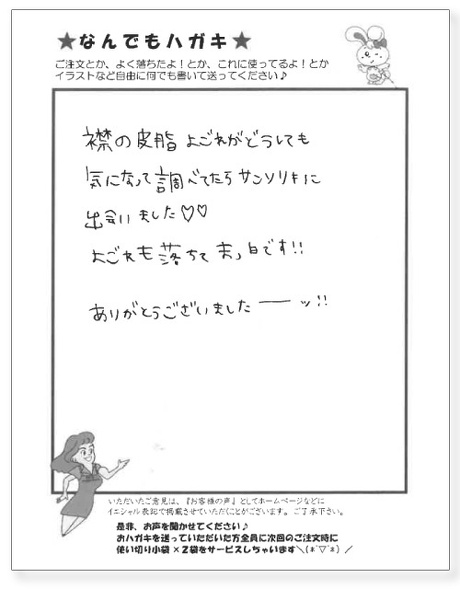 ★なんでもハガキ★
ご注文とか、よく落ちたよ!とか、これに使ってるよ!とか
イラストなど自由に何でも書いて送ってください♪
襟の皮脂よごれがどうしても
気になって調べてたらサンソリキに
出会いました♡♡
よごれも落ちてまっ白です!!
ありがとうございましたーーッ!!
いただいたご意見は、『お客様の声』としてホームページなどに
イニシャル表記で掲載させていただくことがございます。ご了承下さい。
是非、お声を聞かせてください♪
おハガキを送っていただいた方全員に次回のご注文時に
使い切り小袋×2袋をサービスしちゃいます＼(*´▽`*)／